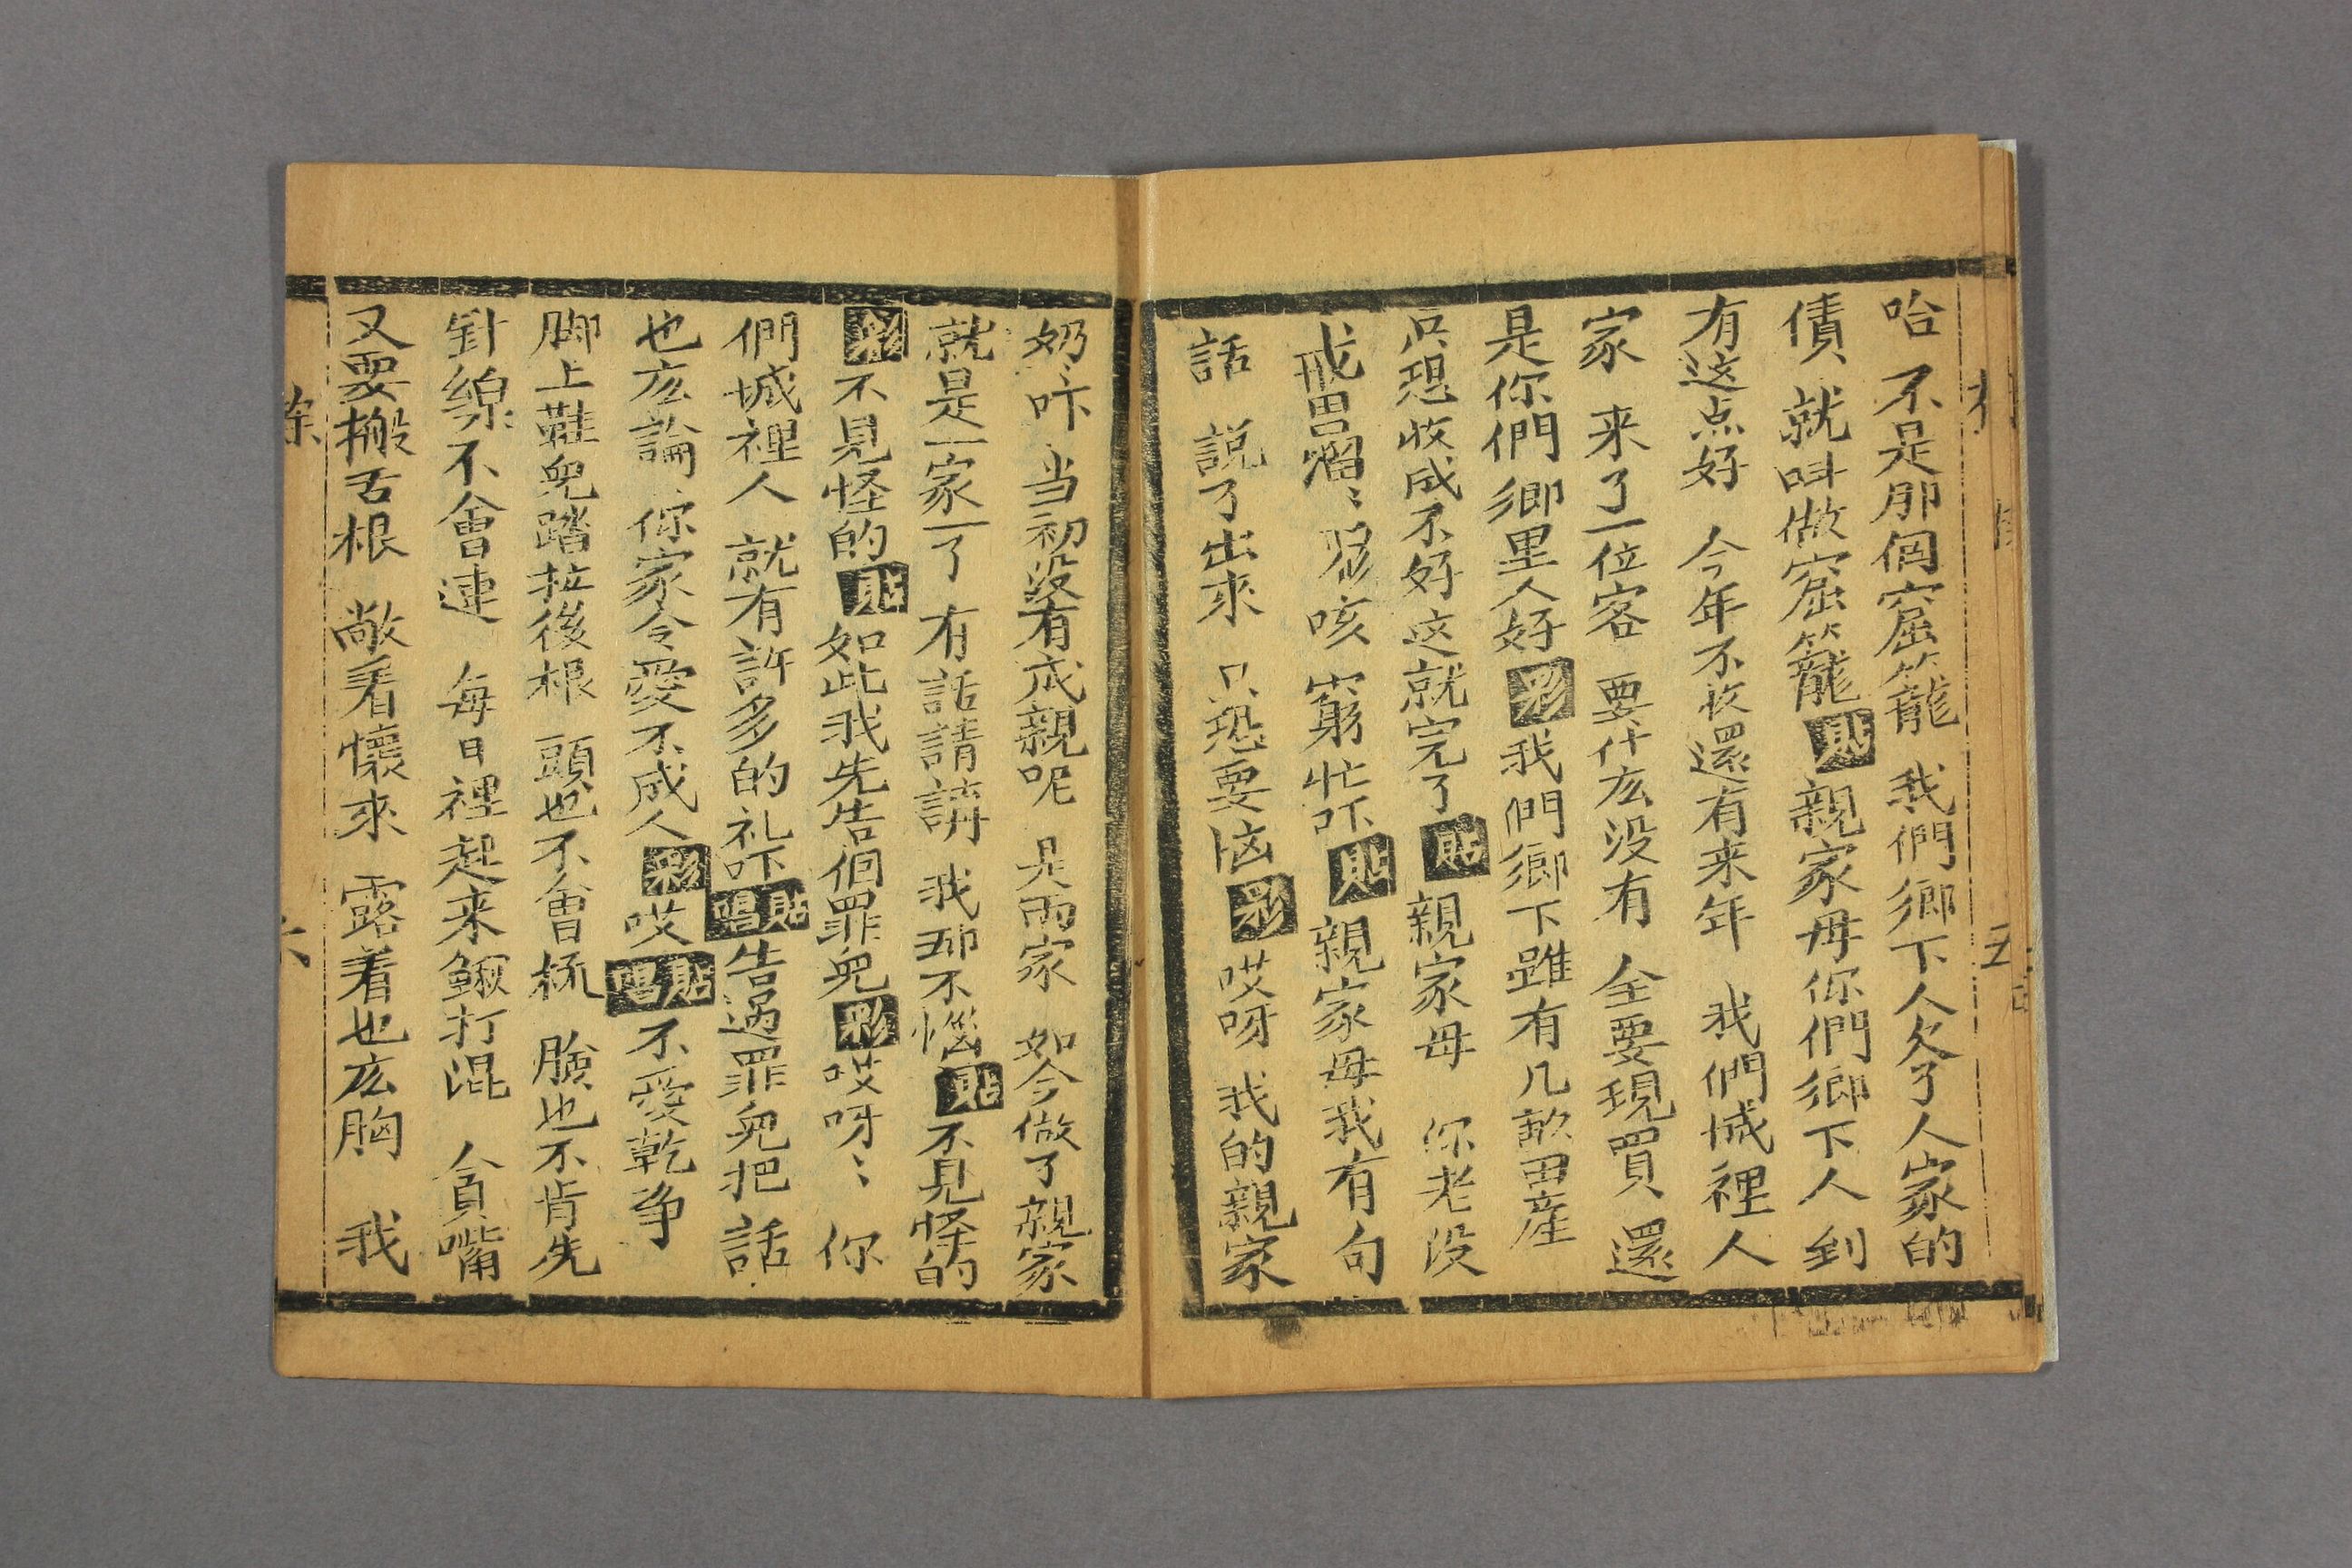 哈 不是那個窟籠 我們鄉下人欠了人家的
債 就叫做窟籠 貼 親家母你們鄉下人到
有这点好 今年不收還有来年 我們城裡人
家 来了一位客 要什広没有 全要現買 還
是你們鄉里人好 彩 我們鄉下雖有几畝田産
只想收成不好这就完了 貼 親家母 你老没
咳 窮忙吓 貼 親家母我有句
話 説了出來 只恐要恼 彩 哎呀 我的親家
奶〻 当初没有成親呢 是両家 如今做了親家
就是一家了 有話請講 我却不惱 貼 不見怪的
彩 不見怪的 貼 如此我先告個罪兒 彩 哎呀〻 你
們城裡人 就有許多的礼吓 貼唱 告過罪兒把 話
也広論 你家令愛不成人 彩 哎 貼唱 不愛乾净
脚上鞋兒踏拉後根 頭也不會梳 臉也不肯先
針線不會連 每日裡起来鰍打混 貪嘴
又要搬舌根 敞着懷來 露着也広胸 我
五
六